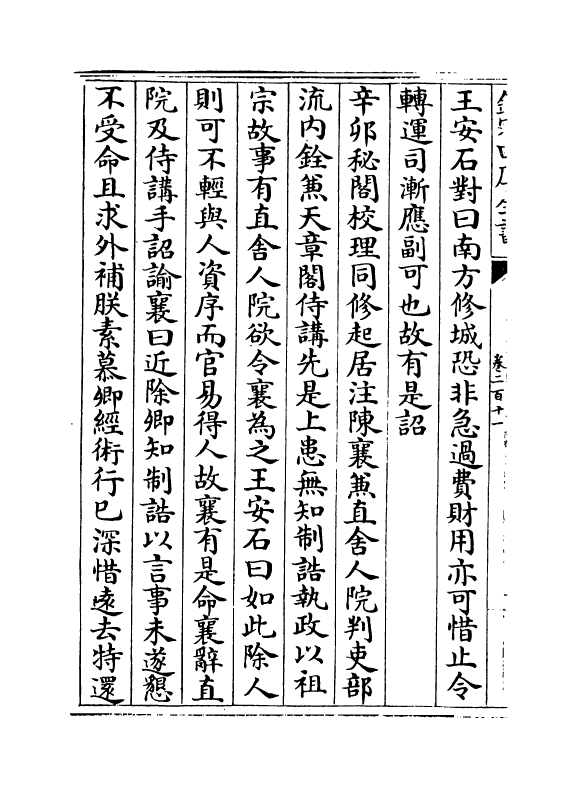 王安石對曰南方修城恐非急過費財用亦可惜止令
轉運司漸應副可也故有是詔
辛卯秘閣校理同修起居注陳襄兼直舍人院判吏部
流内銓兼天章閣侍講先是上患無知制誥執政以祖
宗故事有直舍人院欲令襄為之王安石曰如此除人
則可不輕與人資序而官易得人故襄有是命襄辭直
院及侍講手詔諭襄曰近除卿知制誥以言事未遂懇
不受命且求外補朕素慕卿經術行已深惜逺去特還
卷二百十一